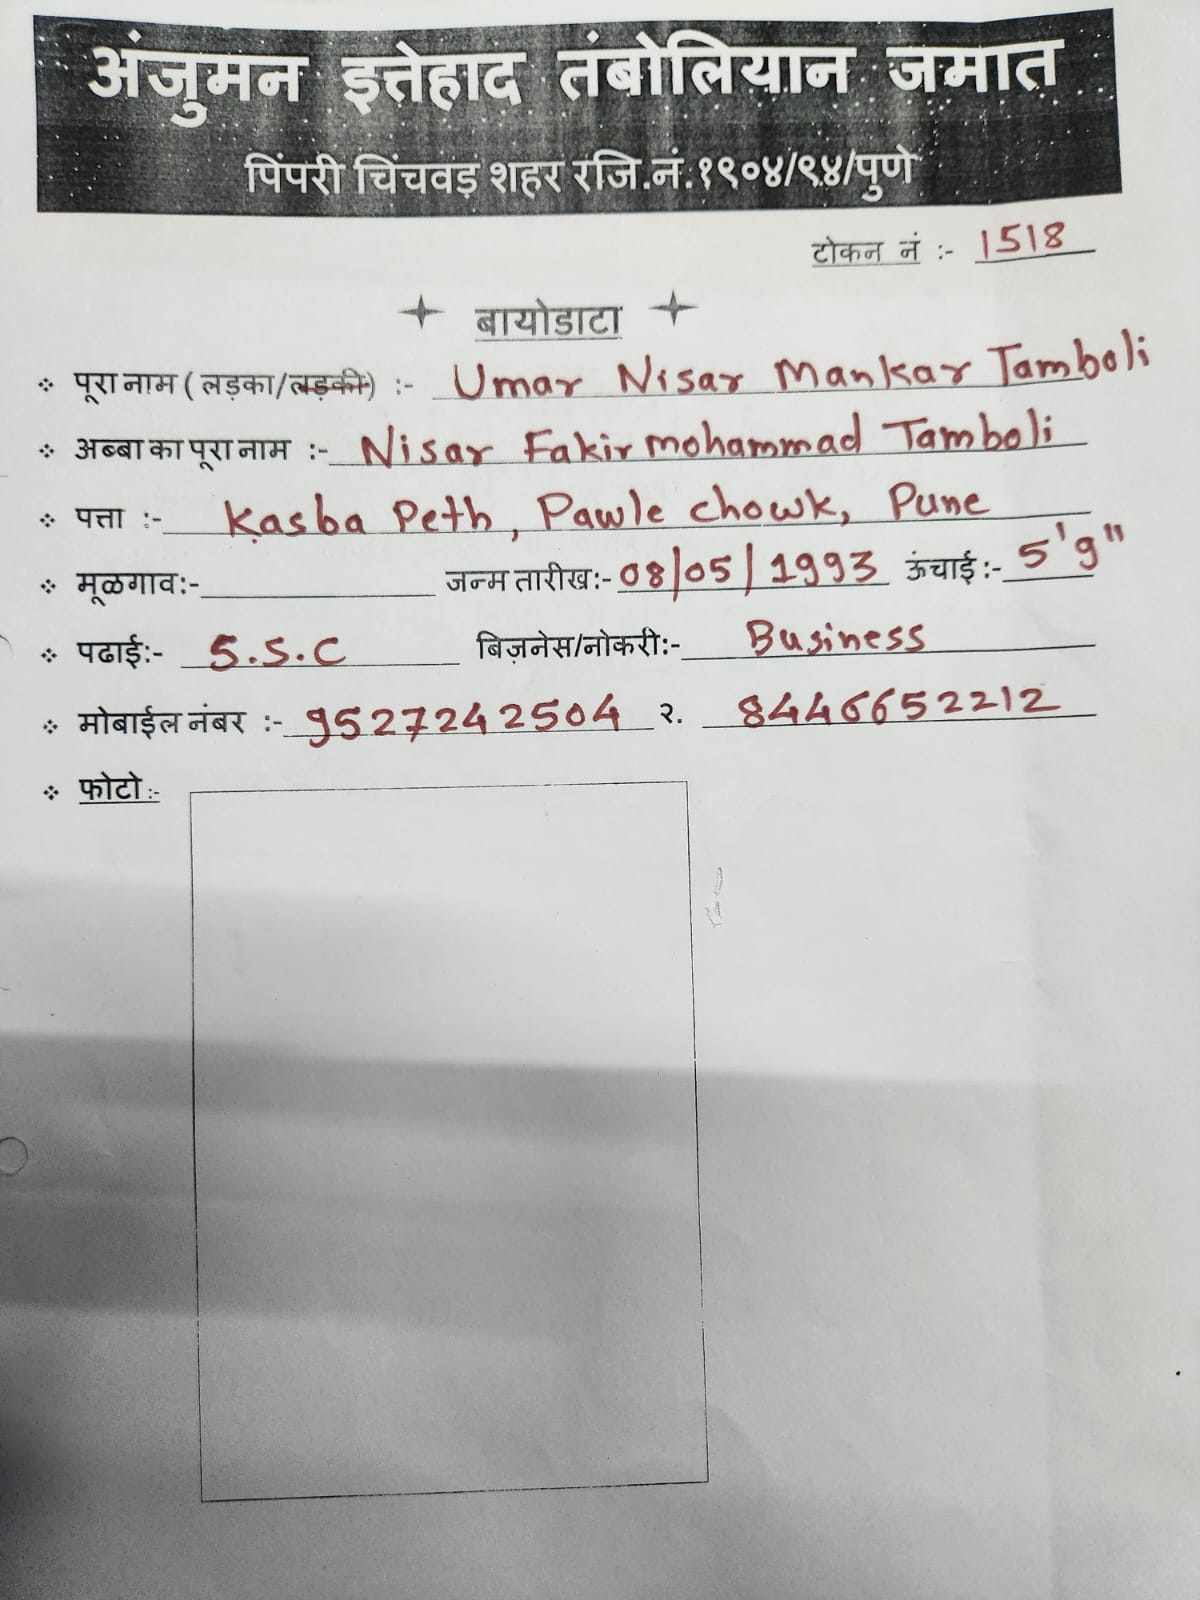 अंजुमन इत्तेहाद तंबोलियान जमात
पिंपरी चिंचवड़ शहर रजि.नं.१९०४/९४/पुणे
टोकन नं :- 1518
बायोडाटा
पूरा नाम ( लड़का/लड़की) :- Umar Nisar Mankar Tamboli
अब्बा का पूरा नाम :- Nisar Fakirmohammad Tamboli
पत्ता :- Kasba Peth, Pawle Chowk, Pune
मूळगाव:- जन्म तारीख:- 08/05/1993 ऊंचाई:- 5'9"
पढाई:- S.S.C बिज़नेस/नोकरी:- Business
मोबाईल नंबर :- 9527242504 २. 8446652212
फोटो:-